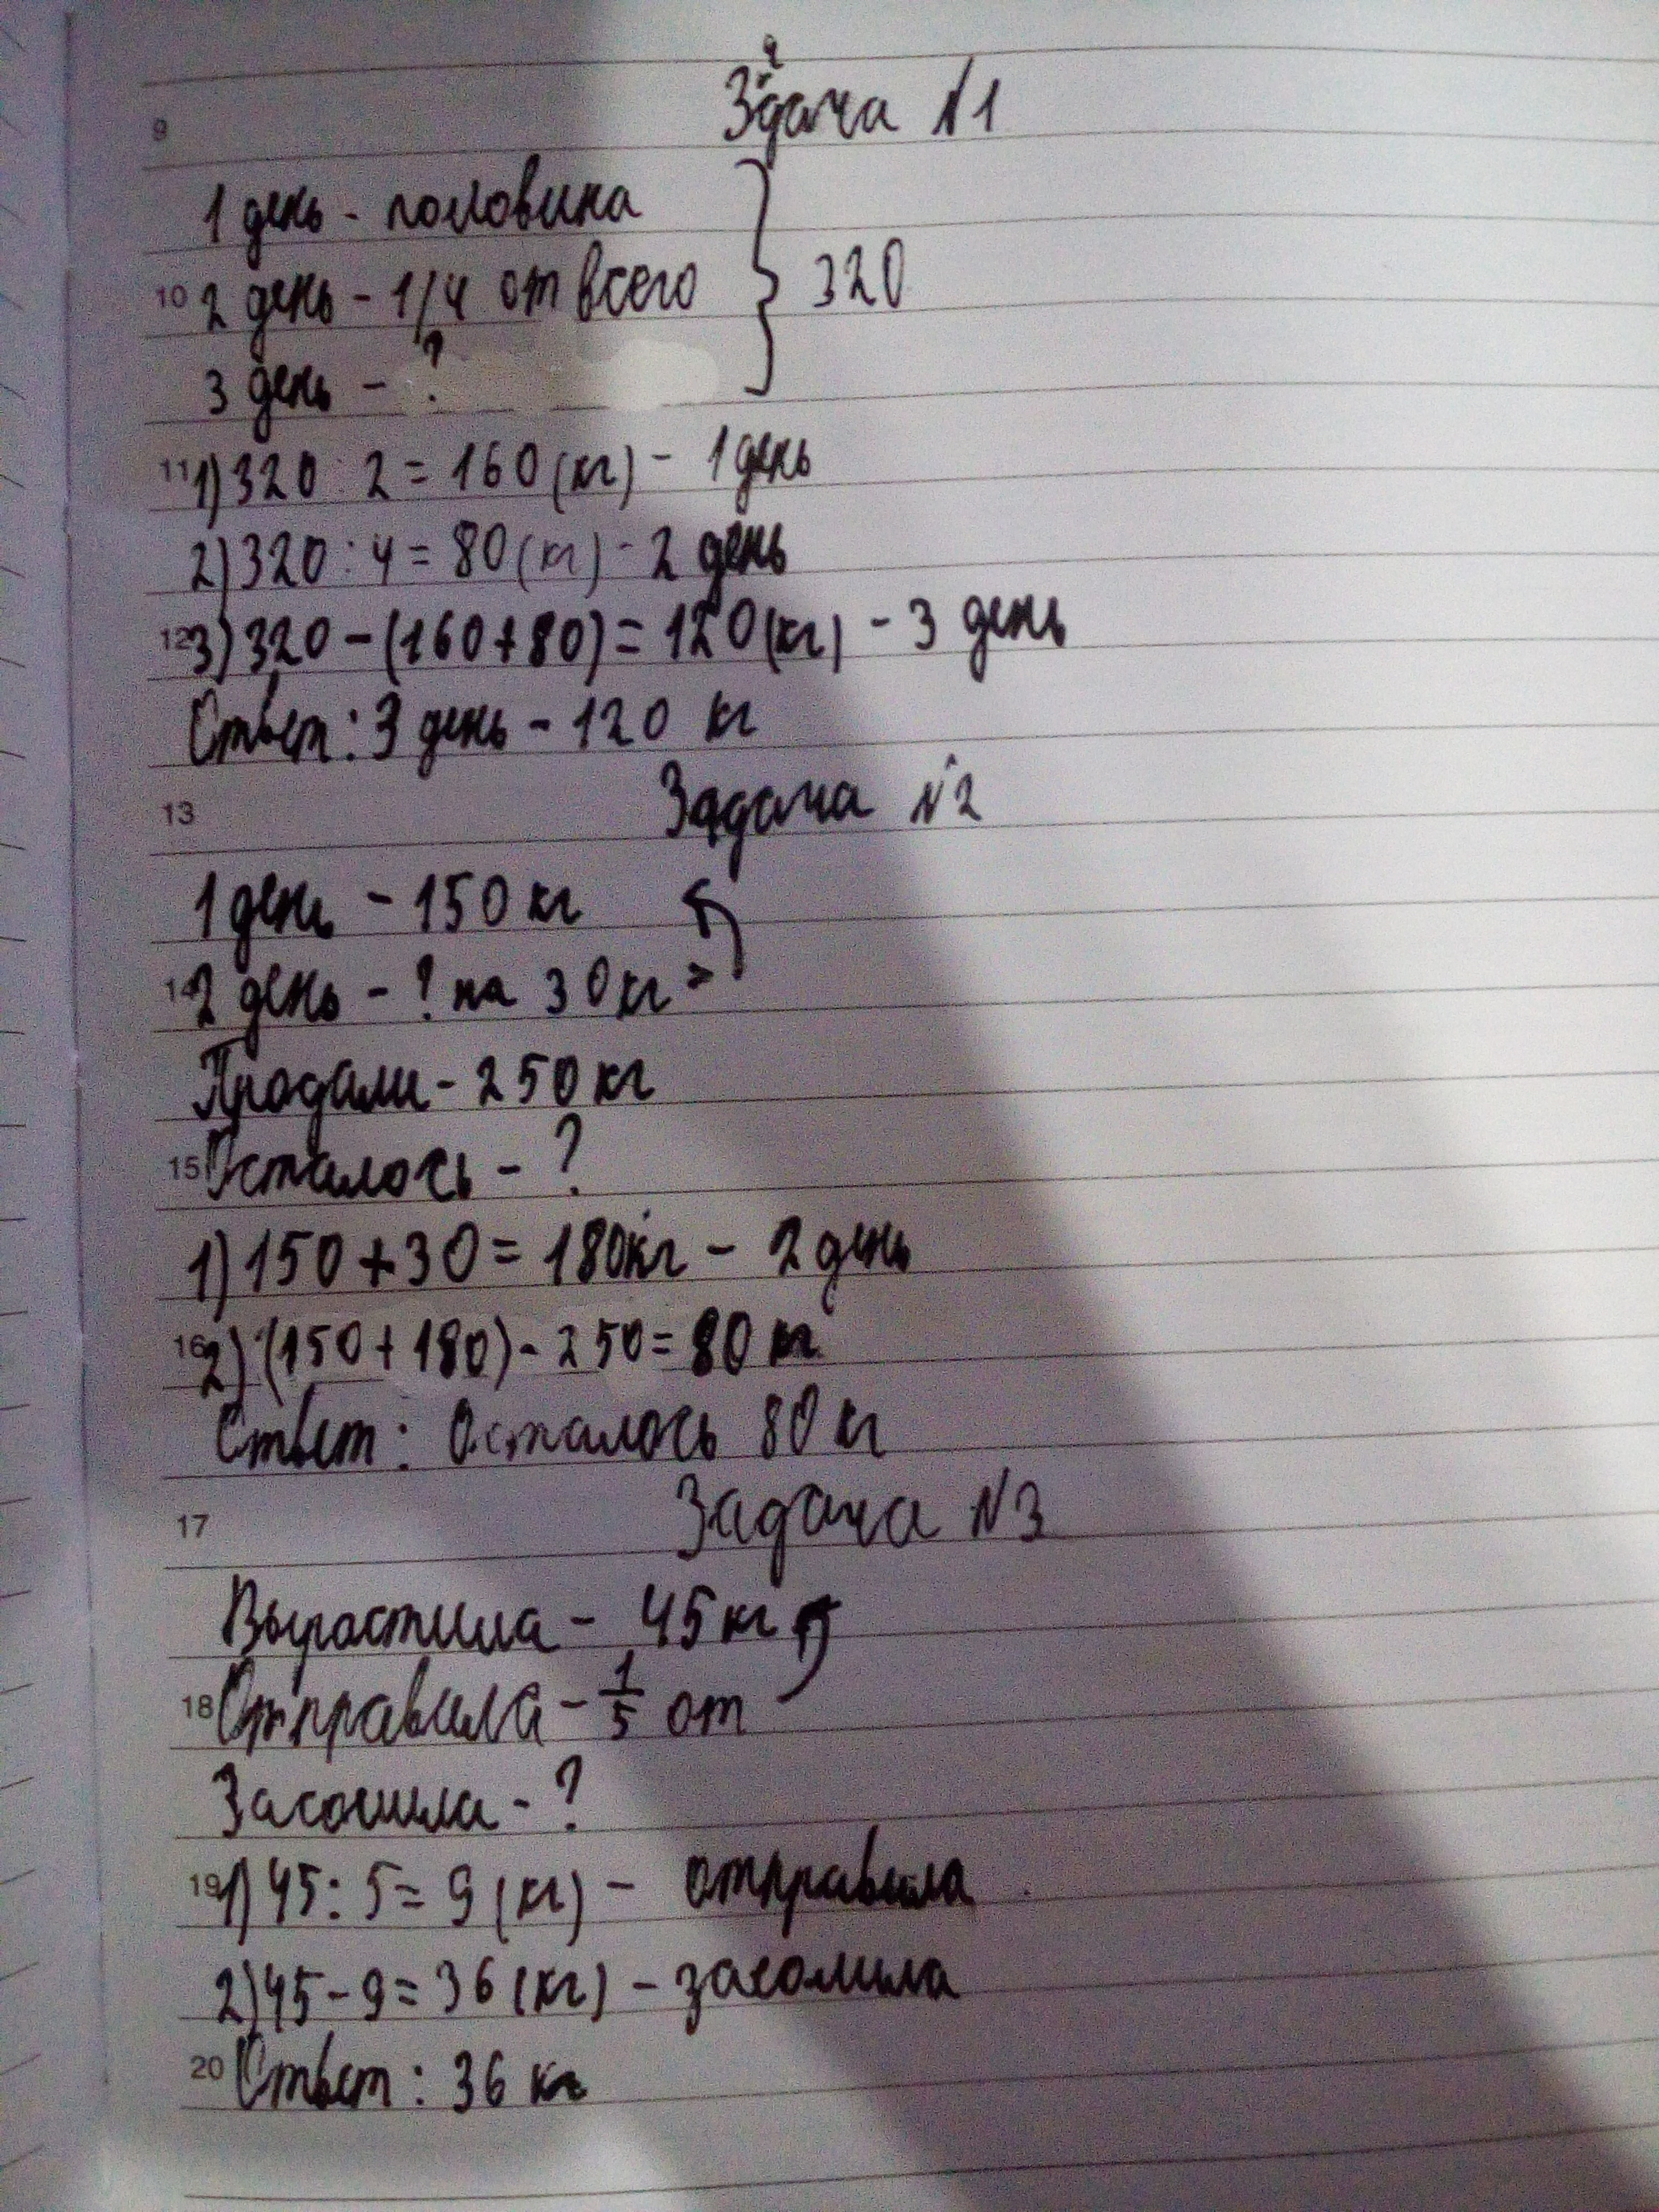 9 Здача №1
а
1 день - половина
10 2 день - 1/4 от всего } 320
3 день - ?
11 1) 320 : 2 = 160 (кг) - 1 день
2) 320 : 4 = 80 (кг) - 2 день
12 3) 320 - (160 + 80) = 120 (кг) - 3 день
Ответ: 3 день - 120 кг
13 Задача №2
1 день - 150 кг
14 2 день - ? на 30 кг >
Продали - 250 кг
15 Осталось - ?
1) 150 + 30 = 180 кг - 2 день
16 2) (150 + 180) - 250 = 80 кг
Ответ: Осталось 80 кг
17 Задача №3
Вырастила - 45 кг
18 Отправила - 1/5 от
Засолила - ?
19 1) 45 : 5 = 9 (кг) - отправила
2) 45 - 9 = 36 (кг) - засолила
20 Ответ: 36 кг